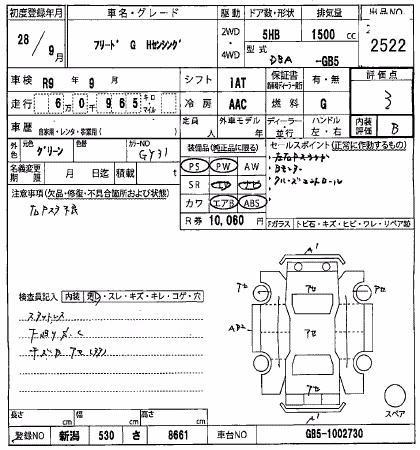 初度登録年月 車名・グレード 駆動 ドア数・形状 排気量 出品NO
28/9月 フリード G Hセンシング 2WD・4WD 5HB 1500 cc 2522
型式 DBA -GB5
車検 R9年9月 シフト 1AT 保証書 有・無 評価点
走行 6万0千965 キロ・マイル 冷房 AAC 燃料 G 3
車歴 自家用・レンタ・事業用( ) 定員 人 外車モデル 年 ディーラー・並行 ハンドル 左・右 内装評価 B
外色 元色 グリーン 色替 カラーNO GY31
装備品(純正品に限る) セールスポイント(正常に作動するもの)
名義変更期限 月 日迄 積載 t
PS PW AW
Bモニター
注意事項(欠品・修復・不具合箇所および状態)
SR
クルーズコントロール
カワ エアB ABS
R券 10,060円
Fガラス トビ石・キズ・ヒビ・ワレ・リペア跡
検査員記入 内装 ・スレ・キズ・キレ・コゲ・穴
A1
スペア
長さ cm 幅 cm 高さ cm
登録NO 新潟 530 さ 8661 車台NO GB5-1002730